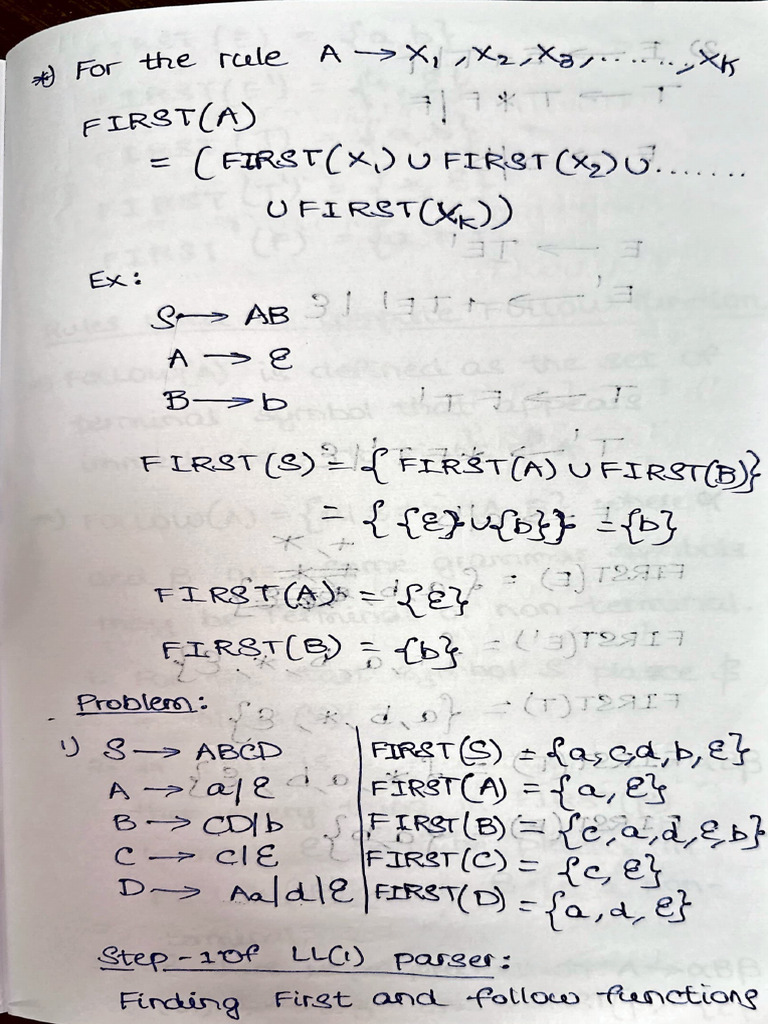 *) For the rule A → X₁, X₂, X₃, ......., Xₖ
FIRST(A)
= (FIRST(X₁) ∪ FIRST(X₂) ∪ .......
∪ FIRST(Xₖ))
Ex:
S → AB
A → ε
B → b
FIRST(S) = { FIRST(A) ∪ FIRST(B)}
= { {ε} ∪ {b}} = {b}
FIRST(A) = {ε}
FIRST(B) = {b}
Problem:
1) S → ABCD | FIRST(S) = {a, c, d, b, ε}
A → a/ε | FIRST(A) = {a, ε}
B → CD/b | FIRST(B) = {c, a, d, ε, b}
C → c/ε | FIRST(C) = {c, ε}
D → Aa/d/ε | FIRST(D) = {a, d, ε}
Step-1 of LL(1) parser:
Finding First and follow functions